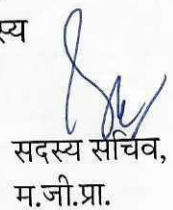 स्य
सदस्य सचिव,
म.जी.प्रा.